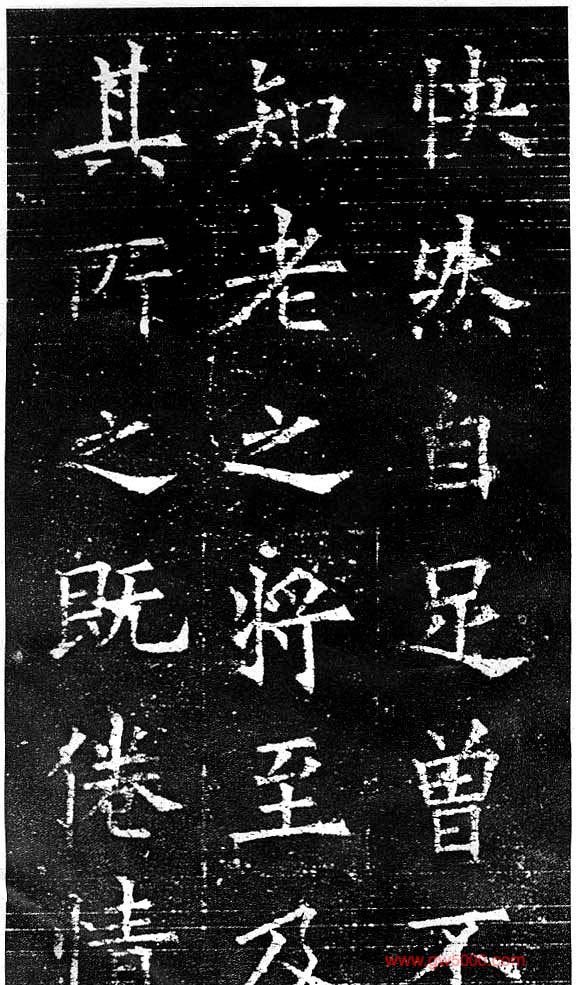 快然自足曾不
知老之将至及
其所之既倦情